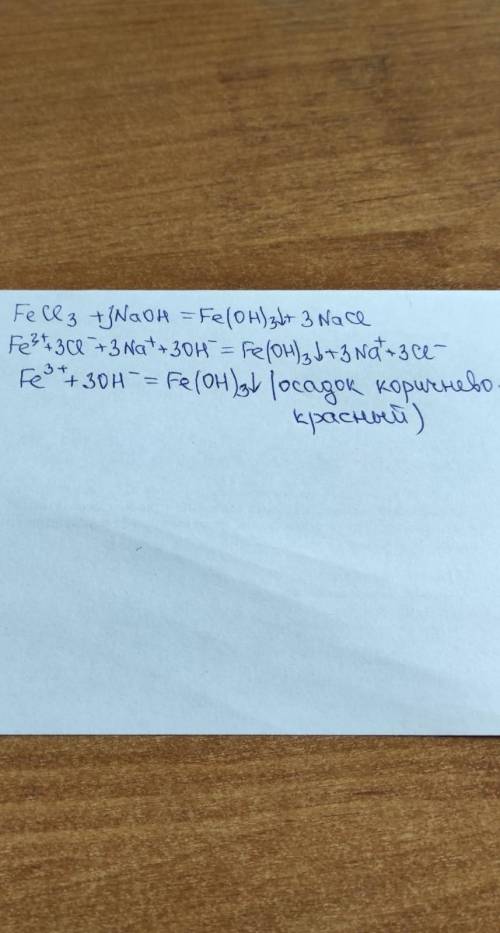 FeCl₃ + 3NaOH = Fe(OH)₃↓ + 3NaCl
Fe³⁺ + 3Cl⁻ + 3Na⁺ + 3OH⁻ = Fe(OH)₃↓ + 3Na⁺ + 3Cl⁻
Fe³⁺ + 3OH⁻ = Fe(OH)₃↓ (осадок коричнево-
красный)